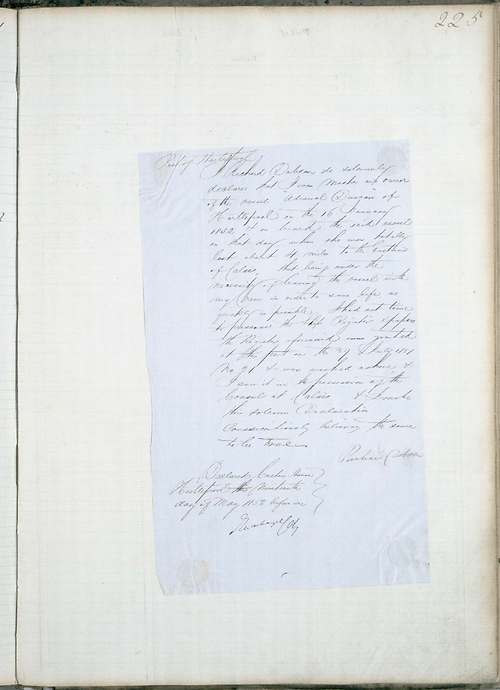 225
Port of Hartlepool
I Richard do solemnly
declare that I was Master and owner
of the vessel "Admiral Duncan" of
Hartlepool on the 16 January
1852 & on board the said vessel
on that day when she was totally
lost about 4 miles to the
of Calais, that being under the
necessity of leaving the vessel with
my crew in order to save life as
quickly as possible, I had not time
to preserve the Ship Register & papers
the Register was granted
at the port on the of July
No & was &
I gave it in the possession of the
Consul at Calais & I make
this solemn Declaration
conscientiously believing the same
to be true
Richard
Declared Custom House
Hartlepool the
day of May 1852 before me